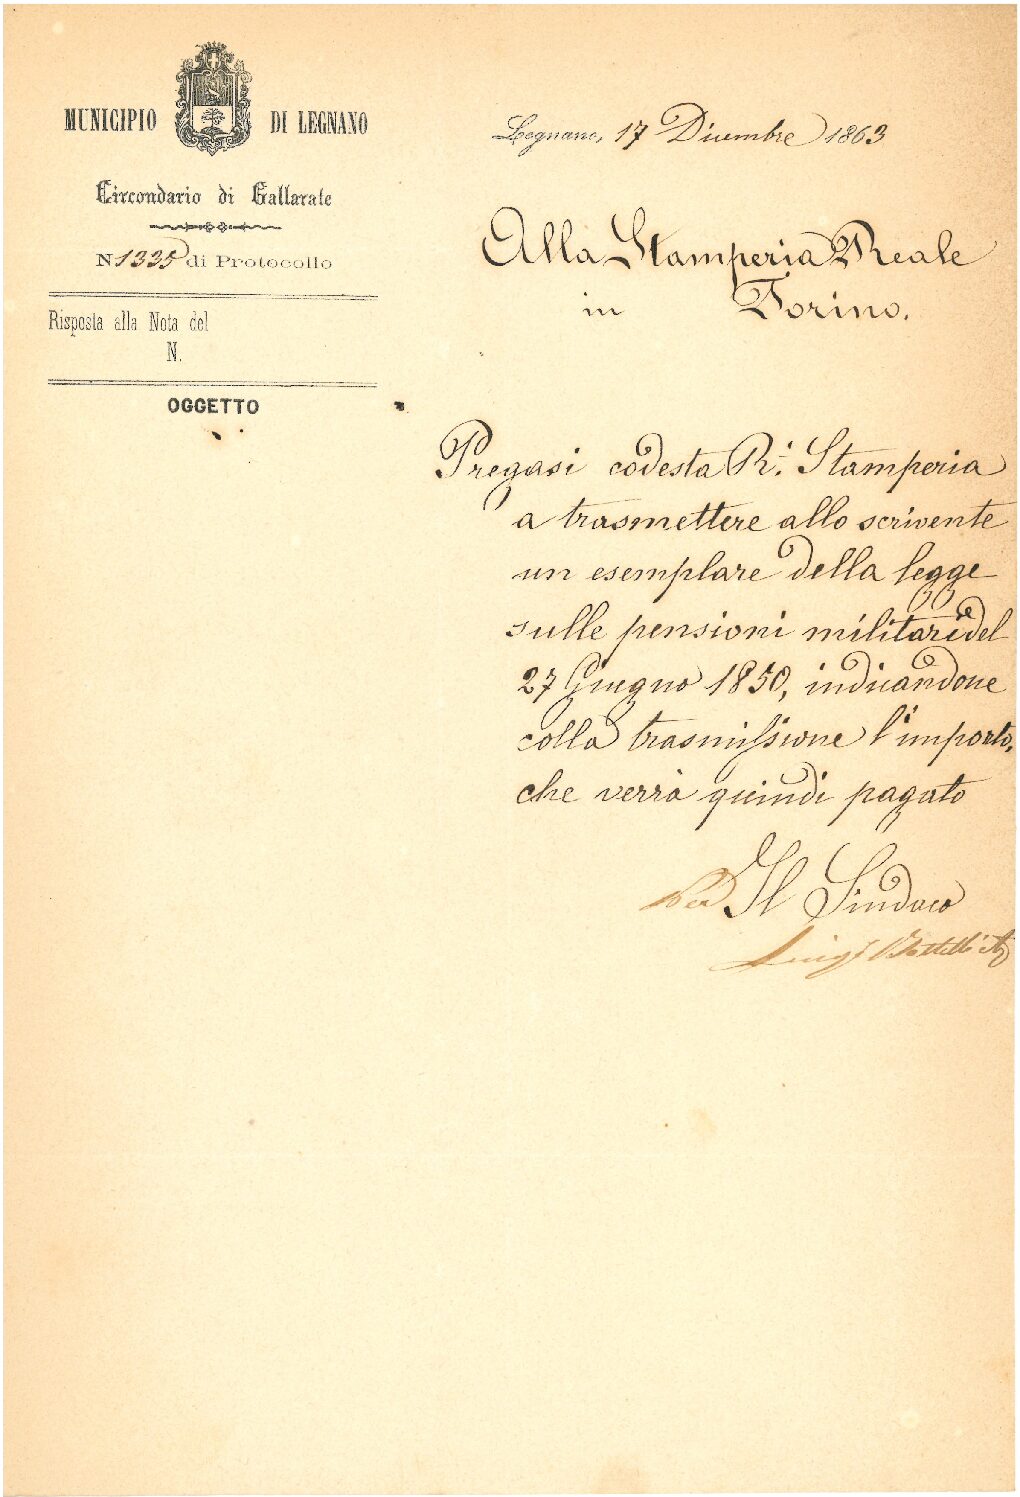 MUNICIPIO DI LEGNANO
Circondario di Gallarate
N 1335 di Protocollo
Risposta alla Nota del
N.
OGGETTO
Legnano, 17 Dicembre 1863
Alla Stamperia Reale
in Torino.
Pregasi codesta R.ͥ Stamperia
a trasmettere allo scrivente
un esemplare della legge
sulle pensioni militari del
27 Giugno 1850, indicandone
colla trasmissione l'importo,
che verrà quindi pagato
Per Il Sindaco
Luigi